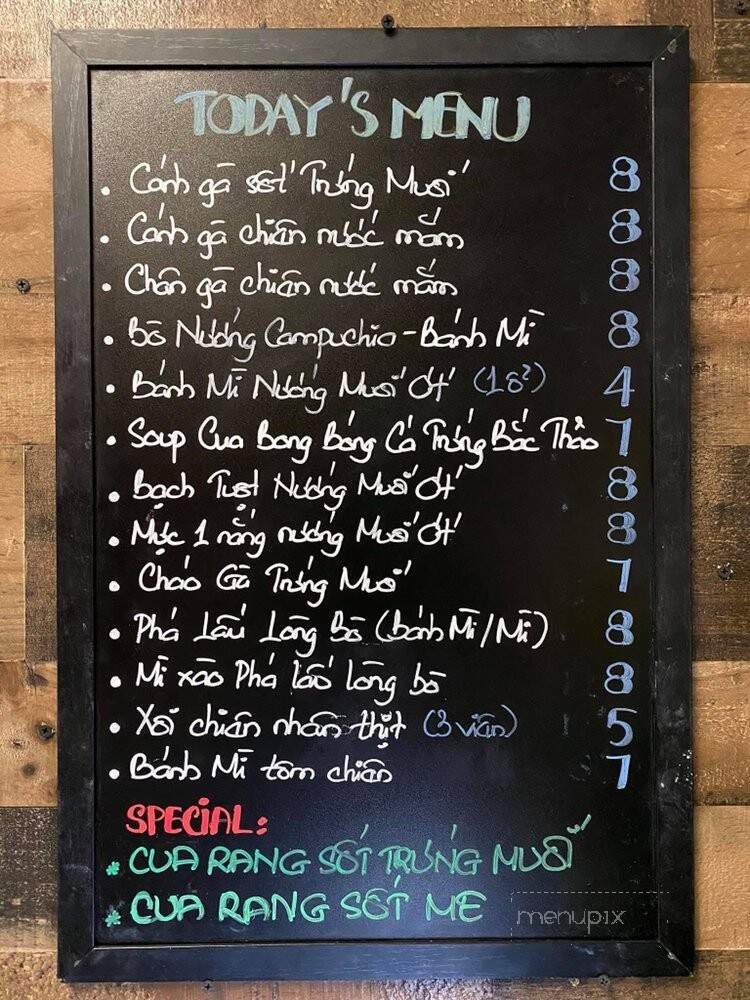 TODAY'S MENU
• Cánh gà sốt Trứng Muối 8
• Cánh gà chiên nước mắm 8
• Chân gà chiên nước mắm 8
• Bò Nướng Campuchia - Bánh Mì 8
• Bánh Mì Nướng Muối Ớt (1 ổ) 4
• Soup Cua Bong Bóng Cá Trứng Bắc Thảo 7
• Bạch Tuột Nướng Muối Ớt 8
• Mực 1 nắng nướng Muối Ớt 8
• Cháo Gà Trứng Muối 7
• Phá Lấu Lòng Bò (Bánh Mì/Mì) 8
• Mì xào Phá lấu lòng bò 8
• Xôi chiên nhân thịt (3 viên) 5
• Bánh Mì tôm chiên 7
SPECIAL:
* CUA RANG SỐT TRỨNG MUỐI
* CUA RANG SỐT ME
menupix